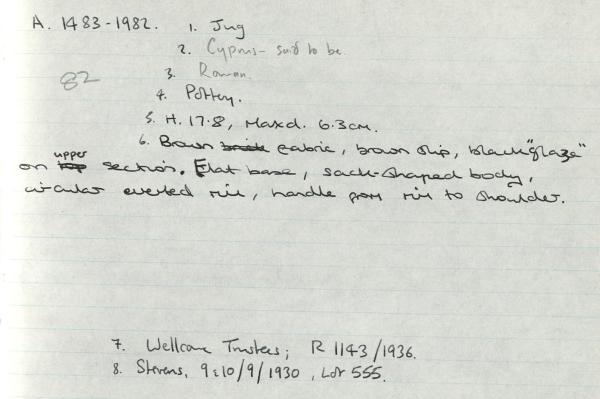 A. 1483-1982. 1. Jug
2. Cyprus - said to be
82 3. Roman.
4. Pottery.
5. H. 17.8, Max d. 6.3cm.
6. Brown fabric, brown slip, black "glaze"
on upper section. Flat base, sack-shaped body,
circular everted rim, handle from rim to shoulder.
7. Wellcome Trustees; R 1143/1936.
8. Stevens, 9 & 10/9/1930, Lot 555.